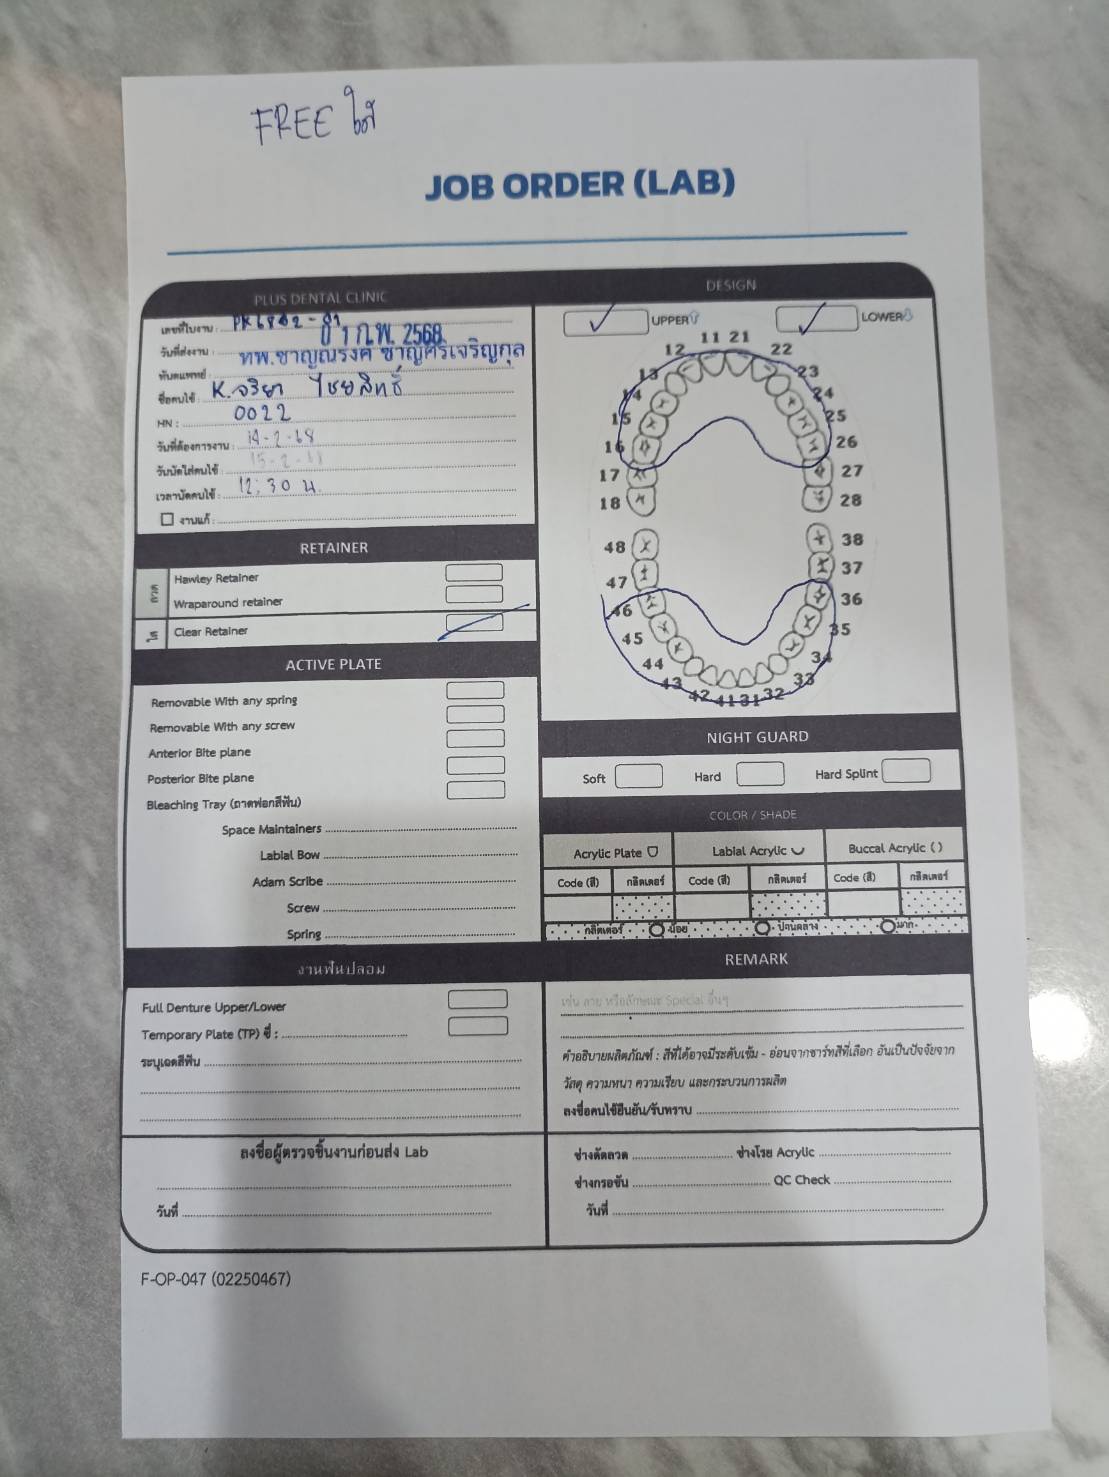 FREE ใส
JOB ORDER (LAB)
PLUS DENTAL CLINIC
เลขที่ใบงาน :
วันที่ส่งงาน : 0 1 ก.พ. 2568
ทันตแพทย์ : ทพ.ชาญณรงค์ ชาญศิริเจริญกุล
ชื่อคนไข้ : K.จริยา ไชยสิทธิ์
HN : 0022
วันที่ต้องการงาน : 14-2-68
วันนัดใส่คนไข้ : 15-2-68
เวลานัดคนไข้ : 12:30 น.
งานแก้ :
RETAINER
ลวด
Hawley Retainer
Wraparound retainer
ใส
Clear Retainer
ACTIVE PLATE
Removable With any spring
Removable With any screw
Anterior Bite plane
Posterior Bite plane
Bleaching Tray (ถาดฟอกสีฟัน)
Space Maintainers
Labial Bow
Adam Scribe
Screw
Spring
งานฟันปลอม
Full Denture Upper/Lower
Temporary Plate (TP) ซี่ :
ระบุเฉดสีฟัน
ลงชื่อผู้ตรวจชิ้นงานก่อนส่ง Lab
วันที่
DESIGN
UPPER LOWER
11 21
12 22
13 23
14 24
15 25
16 26
17 27
18 28
48 38
47 37
46 36
45 35
44 34
43 33
42 41 31 32
NIGHT GUARD
Soft Hard Hard Splint
COLOR / SHADE
Acrylic Plate Labial Acrylic Buccal Acrylic ( )
Code (สี) กลิตเตอร์ Code (สี) กลิตเตอร์ Code (สี) กลิตเตอร์
กลิตเตอร์ น้อย ปานกลาง มาก
REMARK
เช่น ลาย หรือลักษณะ Special อื่นๆ
คำอธิบายผลิตภัณฑ์ : สีที่ได้อาจมีระดับเข้ม - อ่อนจากชาร์ทสีที่เลือก อันเป็นปัจจัยจาก
วัสดุ ความหนา ความเรียบ และกระบวนการผลิต
ลงชื่อคนไข้ยืนยัน/รับทราบ
ช่างดัดลวด ช่างโรย Acrylic
ช่างกรอขัน QC Check
วันที่
F-OP-047 (02250467)